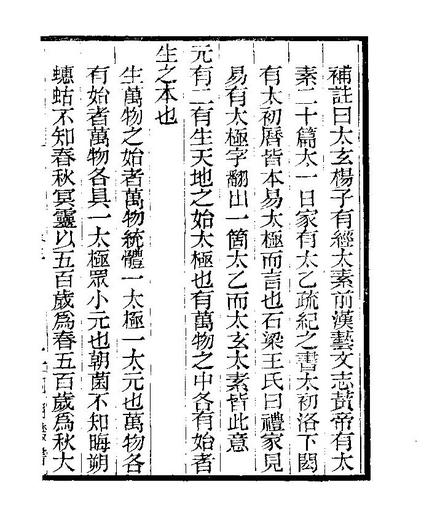 補註曰太玄楊子有經太素前漢藝文志黃帝有太
素二十篇太一日家有太乙疏紀之書太初洛下閎
有太初曆皆本易太極而言也石梁王氏曰禮家見
易有太極字翻出一箇太乙而太玄太素皆此意
元有二有生天地之始太極也有萬物之中各有始者
生之本也
生萬物之始者萬物統體一太極一太元也萬物各
有始者萬物各具一太極眾小元也朝菌不知晦朔
蟪蛄不知春秋冥靈以五百歲爲春五百歲爲秋大